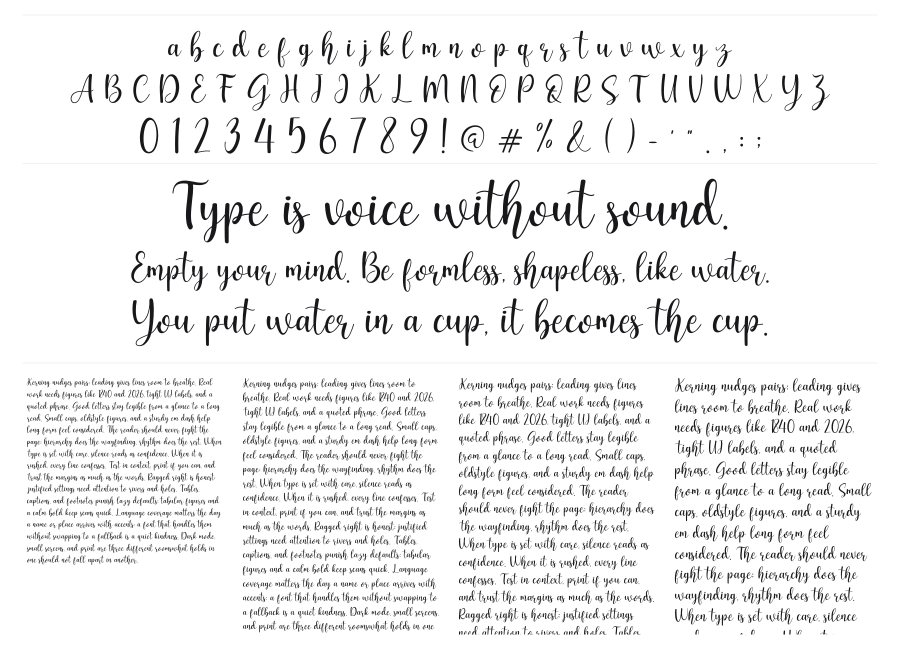 a b c d e f g h i j k l m n o p q r s t u v w x y z
A B C D E F G H I J K L M N O P Q R S T U V W X Y Z
0 1 2 3 4 5 6 7 8 9 ! @ # % & ( ) - ' " . , : ;
Type is voice without sound.
Empty your mind. Be formless, shapeless, like water.
You put water in a cup, it becomes the cup.
Kerning nudges pairs; leading gives lines room to breathe. Real
work needs figures like 1840 and 2026, tight UI labels, and a
quoted phrase. Good letters stay legible from a glance to a long
read. Small caps, oldstyle figures, and a sturdy em dash help
long form feel considered. The reader should never fight the
page: hierarchy does the wayfinding, rhythm does the rest. When
type is set with care, silence reads as confidence. When it is
rushed, every line confesses. Test in context, print if you can, and
trust the margins as much as the words. Ragged right is honest;
justified settings need attention to rivers and holes. Tables,
captions, and footnotes punish lazy defaults: tabular figures and
a calm bold keep scans quick. Language coverage matters the day
a name or place arrives with accents: a font that handles them
without swapping to a fallback is a quiet kindness. Dark mode,
small screens, and print are three different rooms: what holds in
one should not fall apart in another.
Kerning nudges pairs; leading gives lines room to
breathe. Real work needs figures like 1840 and 2026,
tight UI labels, and a quoted phrase. Good letters
stay legible from a glance to a long read. Small caps,
oldstyle figures, and a sturdy em dash help long form
feel considered. The reader should never fight the
page: hierarchy does the wayfinding, rhythm does the
rest. When type is set with care, silence reads as
confidence. When it is rushed, every line confesses. Test
in context, print if you can, and trust the margins as
much as the words. Ragged right is honest; justified
settings need attention to rivers and holes. Tables,
captions, and footnotes punish lazy defaults: tabular
figures and a calm bold keep scans quick. Language
coverage matters the day a name or place arrives with
accents: a font that handles them without swapping to
a fallback is a quiet kindness. Dark mode, small screens,
and print are three different rooms: what holds in one
Kerning nudges pairs; leading gives lines
room to breathe. Real work needs figures
like 1840 and 2026, tight UI labels, and a
quoted phrase. Good letters stay legible
from a glance to a long read. Small caps,
oldstyle figures, and a sturdy em dash help
long form feel considered. The reader
should never fight the page: hierarchy does
the wayfinding, rhythm does the rest.
When type is set with care, silence reads as
confidence. When it is rushed, every line
confesses. Test in context, print if you can,
and trust the margins as much as the words.
Ragged right is honest; justified settings
need attention to rivers and holes. Tables,
Kerning nudges pairs; leading gives
lines room to breathe. Real work
needs figures like 1840 and 2026,
tight UI labels, and a quoted
phrase. Good letters stay legible
from a glance to a long read. Small
caps, oldstyle figures, and a sturdy
em dash help long form feel
considered. The reader should never
fight the page: hierarchy does the
wayfinding, rhythm does the rest.
When type is set with care, silence